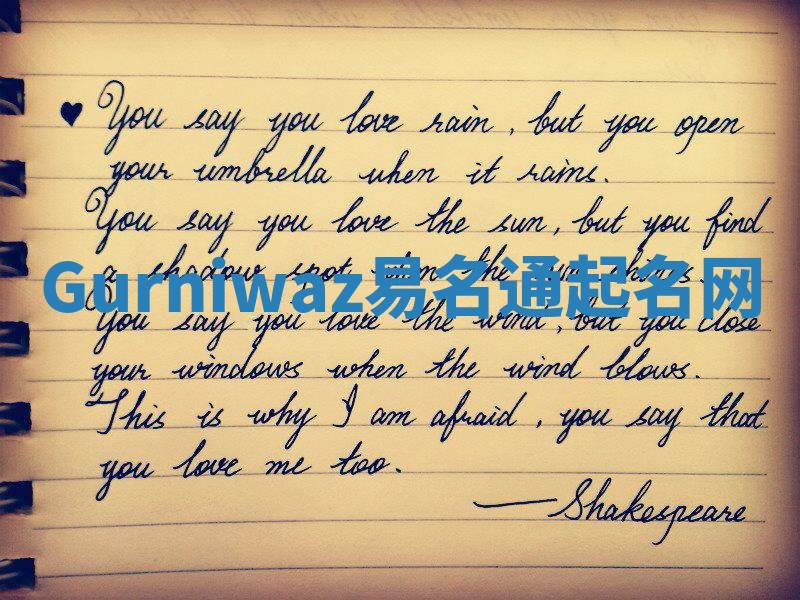 ♥ You say you love rain, but you open
your umbrella when it rains.
You say you love the sun, but you find
a shadow spot when the sun shines.
Gurniwaz易名通起名网
You say you love the wind, but you close
your windows when the wind blows.
This is why I am afraid, you say that
you love me too.
—Shakespeare